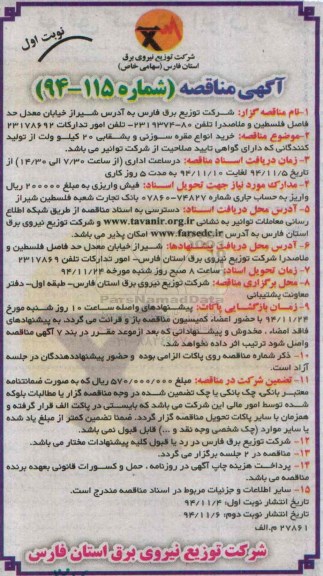 نوبت اول
شرکت توزیع نیروی برق
استان فارس (سهامی خاص)
آگهی مناقصه (شماره ۱۱۵-۹۴)
۱-نام مناقصه گزار: شرکت توزیع برق فارس به آدرس شیراز خیابان معدل حد
فاصل فلسطین و ملاصدرا تلفن ۸۰-۲۳۱۹۳۷۴- تلفن امور تدارکات ۲۳۱۷۸۶۹۲
۲-موضوع مناقصه: خرید انواع مقره سوزنی و بشقابی ۲۰ کیلو ولت از تولید
کنندگانی که دارای گواهی تایید صلاحیت از شرکت توانیر می باشد.
۳- زمان دریافت اسناد مناقصه: درساعت اداری (از ساعت ۷/۳۰ الی ۱۴/۳۰) از
تاریخ ۹۴/۱۱/۵ لغایت ۹۴/۱۱/۱۰ به مدت ۵ روز کاری
۴- مدارک مورد نیاز جهت تحویل اسناد: فیش واریزی به مبلغ ۲۰۰۰۰۰ ریال
واریز به حساب جاری شماره ۷۴۸۲۷-۰۷۸۶۰ بانک تجارت شعبه فلسطین شیراز
۵- آدرس محل دریافت اسناد: دسترسی به اسناد مناقصه از طریق شبکه اطلاع
رسانی معاملات توانیر به نشانی www.tavanir.org.ir و شرکت توزیع نیروی برق
استان فارس به آدرس www.farsedc.ir امکان پذیر می باشد.
۶- آدرس محل دریافت پیشنهادها: شیراز خیابان معدل حد فاصل فلسطین و
ملاصدرا شرکت توزیع نیروی برق استان فارس- امور تدارکات تلفن ۲۳۱۷۸۶۹
۷- زمان تحویل اسناد: ساعت ۸ صبح روز شنبه مورخه ۹۴/۱۱/۲۴
۸- محل برگزاری مناقصه: شرکت توزیع نیروی برق استان فارس- طبقه اول- دفتر
معاونت پشتیبانی
۹- زمان بازگشایی پاکات: پیشنهادهای واصله ساعت ۱۰ روز شنبه مورخ
۹۴/۱۱/۲۴ با حضور اعضاء کمیسیون مناقصه باز و قرائت می گردد. به پیشنهادهای
فاقد امضاء ، مخدوش و پیشنهاداتی که بعد ازموعد مقرر در بند ۷ آگهی مناقصه
واصل شود ترتیب اثر داده نخواهد شد.
۱۰- ذکر شماره مناقصه روی پاکات الزامی بوده و حضور پیشنهاددهندگان در جلسه
آزاد است.
۱۱- تضمین شرکت در مناقصه: مبلغ ۵۷۰/۰۰۰/۰۰۰ ریال که به صورت ضمانتنامه
معتبر بانکی چک بانکی یا چک تضمین شده در وجه مناقصه گزار یا مطالبات بلوکه
شده توسط امور مالی این شرکت می باشد که بایستی در پاکت الف قرار گرفته و
همزمان با سایر پاکات تحویل مناقصه گزار گردد. ضمنا تضمین کمتر از مبلغ یاد شده
یا سایر موارد (چک شخصی وجه نقد و ...) قابل قبول نمی باشد.
۱۲- شرکت توزیع برق فارس در رد یا قبول کلیه پیشنهادات مختار می باشد.
۱۳- مناقصه در ۲ جلسه برگزار می گردد.
۱۴- پرداخت هزینه چاپ آگهی در روزنامه ، حمل و کسورات قانونی بعهده برنده
مناقصه می باشد.
۱۵- سایر اطلاعات و جزئیات مربوط در اسناد مناقصه مندرج است.
تاریخ انتشار نوبت اول: ۹۴/۱۱/۴
تاریخ انتشار نوبت دوم: ۹۴/۱۱/۶
۲۷۸۶۱ م.الف
شرکت توزیع نیروی برق استان فارس